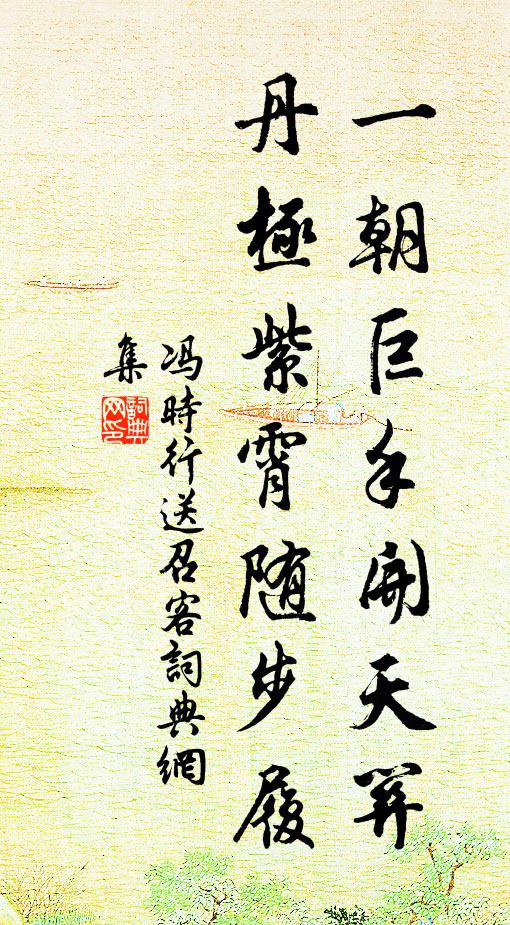 一朝巨手開天關
丹極紫霄随步履
冯時行送召客詞典網
集
詞典
网印